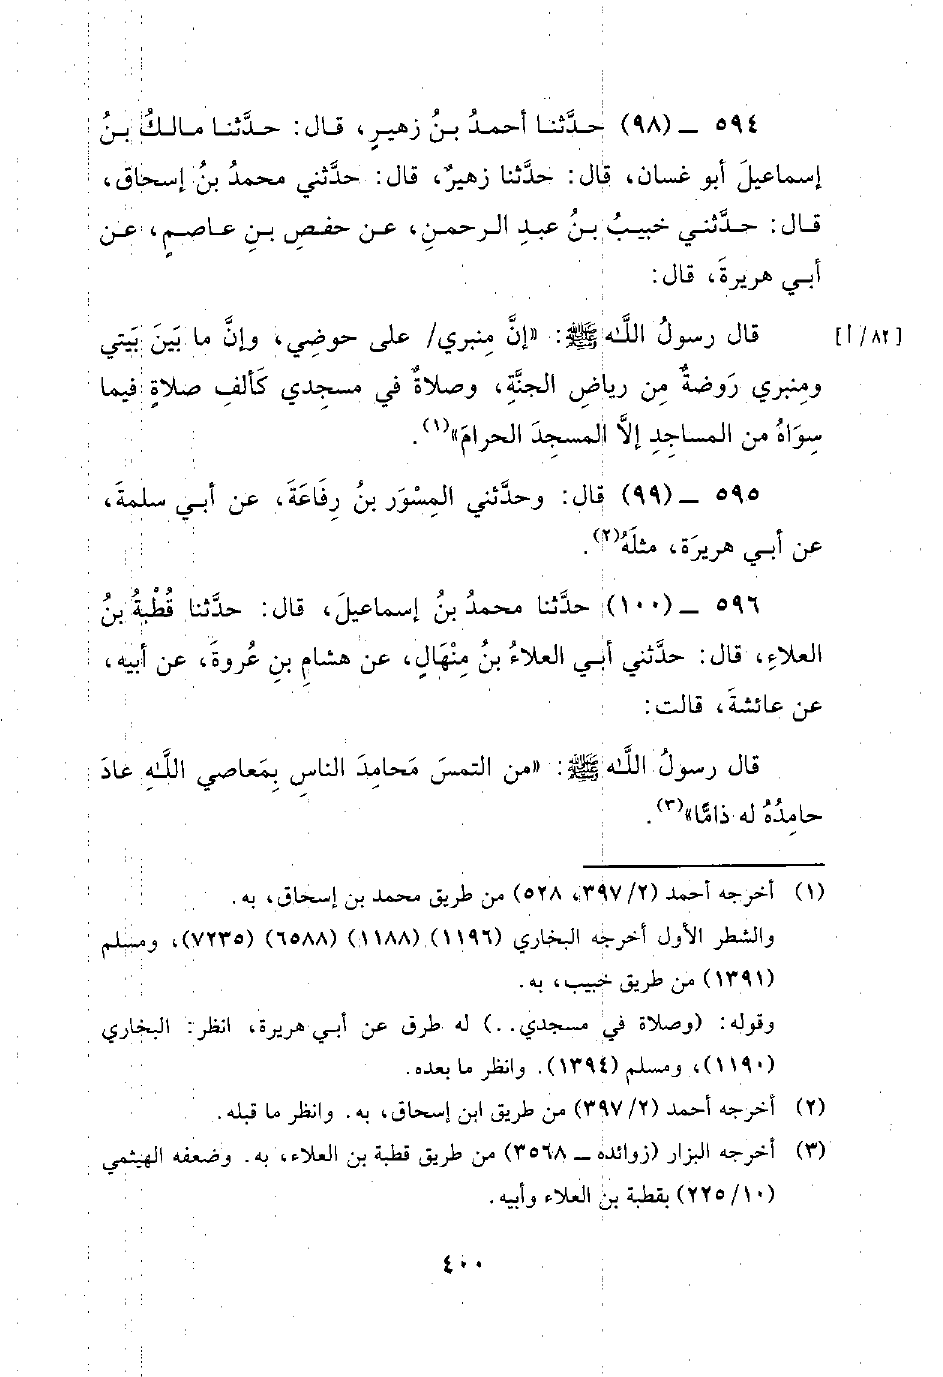 ٥٩٤ ــ (٩٨) حدَّثنا أحمدُ بنُ زهيرٍ، قال: حدَّثنا مالكُ بنُ
إسماعيلَ أبو غسان، قال: حدَّثنا زهيرٌ، قال: حدَّثني محمدُ بنُ إسحاق،
قال: حدَّثني خبيبُ بنُ عبدِ الرحمنِ، عن حفصِ بنِ عاصمٍ، عن
أبي هريرةَ، قال:
[٨٢/أ] قال رسولُ اللَّه ﷺ: «إنَّ مِنبري/ على حوضِي، وإنَّ ما بَينَ بَيتي
ومِنبري رَوضةٌ مِن رياضِ الجنَّةِ، وصلاةٌ في مسجدي كَألفِ صلاةٍ فيما
سِوَاهُ من المساجدِ إلاَّ المسجدَ الحرامَ»(١).
٥٩٥ ــ (٩٩) قال: وحدَّثني المِسْوَر بنُ رِفَاعَةَ، عن أبي سلمةَ،
عن أبي هريرَة، مثلَهُ(٢).
٥٩٦ ــ (١٠٠) حدَّثنا محمدُ بنُ إسماعيلَ، قال: حدَّثنا قُطْبةُ بنُ
العلاءِ، قال: حدَّثني أبي العلاءُ بنُ مِنْهَالٍ، عن هشامِ بنِ عُروةَ، عن أبيه،
عن عائشةَ، قالت:
قال رسولُ اللَّه ﷺ: «من التمسَ مَحامِدَ الناسِ بِمَعاصي اللَّهِ عادَ
حامِدُهُ له ذامًّا»(٣).
(١) أخرجه أحمد (٢/ ٣٩٧، ٥٢٨) من طريق محمد بن إسحاق، به.
والشطر الأول أخرجه البخاري (١١٩٦) (١١٨٨) (٦٥٨٨) (٧٢٣٥)، ومسلم
(١٣٩١) من طريق خبيب، به.
وقوله: (وصلاة في مسجدي..) له طرق عن أبي هريرة، انظر: البخاري
(١١٩٠)، ومسلم (١٣٩٤). وانظر ما بعده.
(٢) أخرجه أحمد (٢/ ٣٩٧) من طريق ابن إسحاق، به. وانظر ما قبله.
(٣) أخرجه البزار (زوائده ــ ٣٥٦٨) من طريق قطبة بن العلاء، به. وضعفه الهيثمي
(١٠/ ٢٢٥) بقطبة بن العلاء وأبيه.
٤٠٠